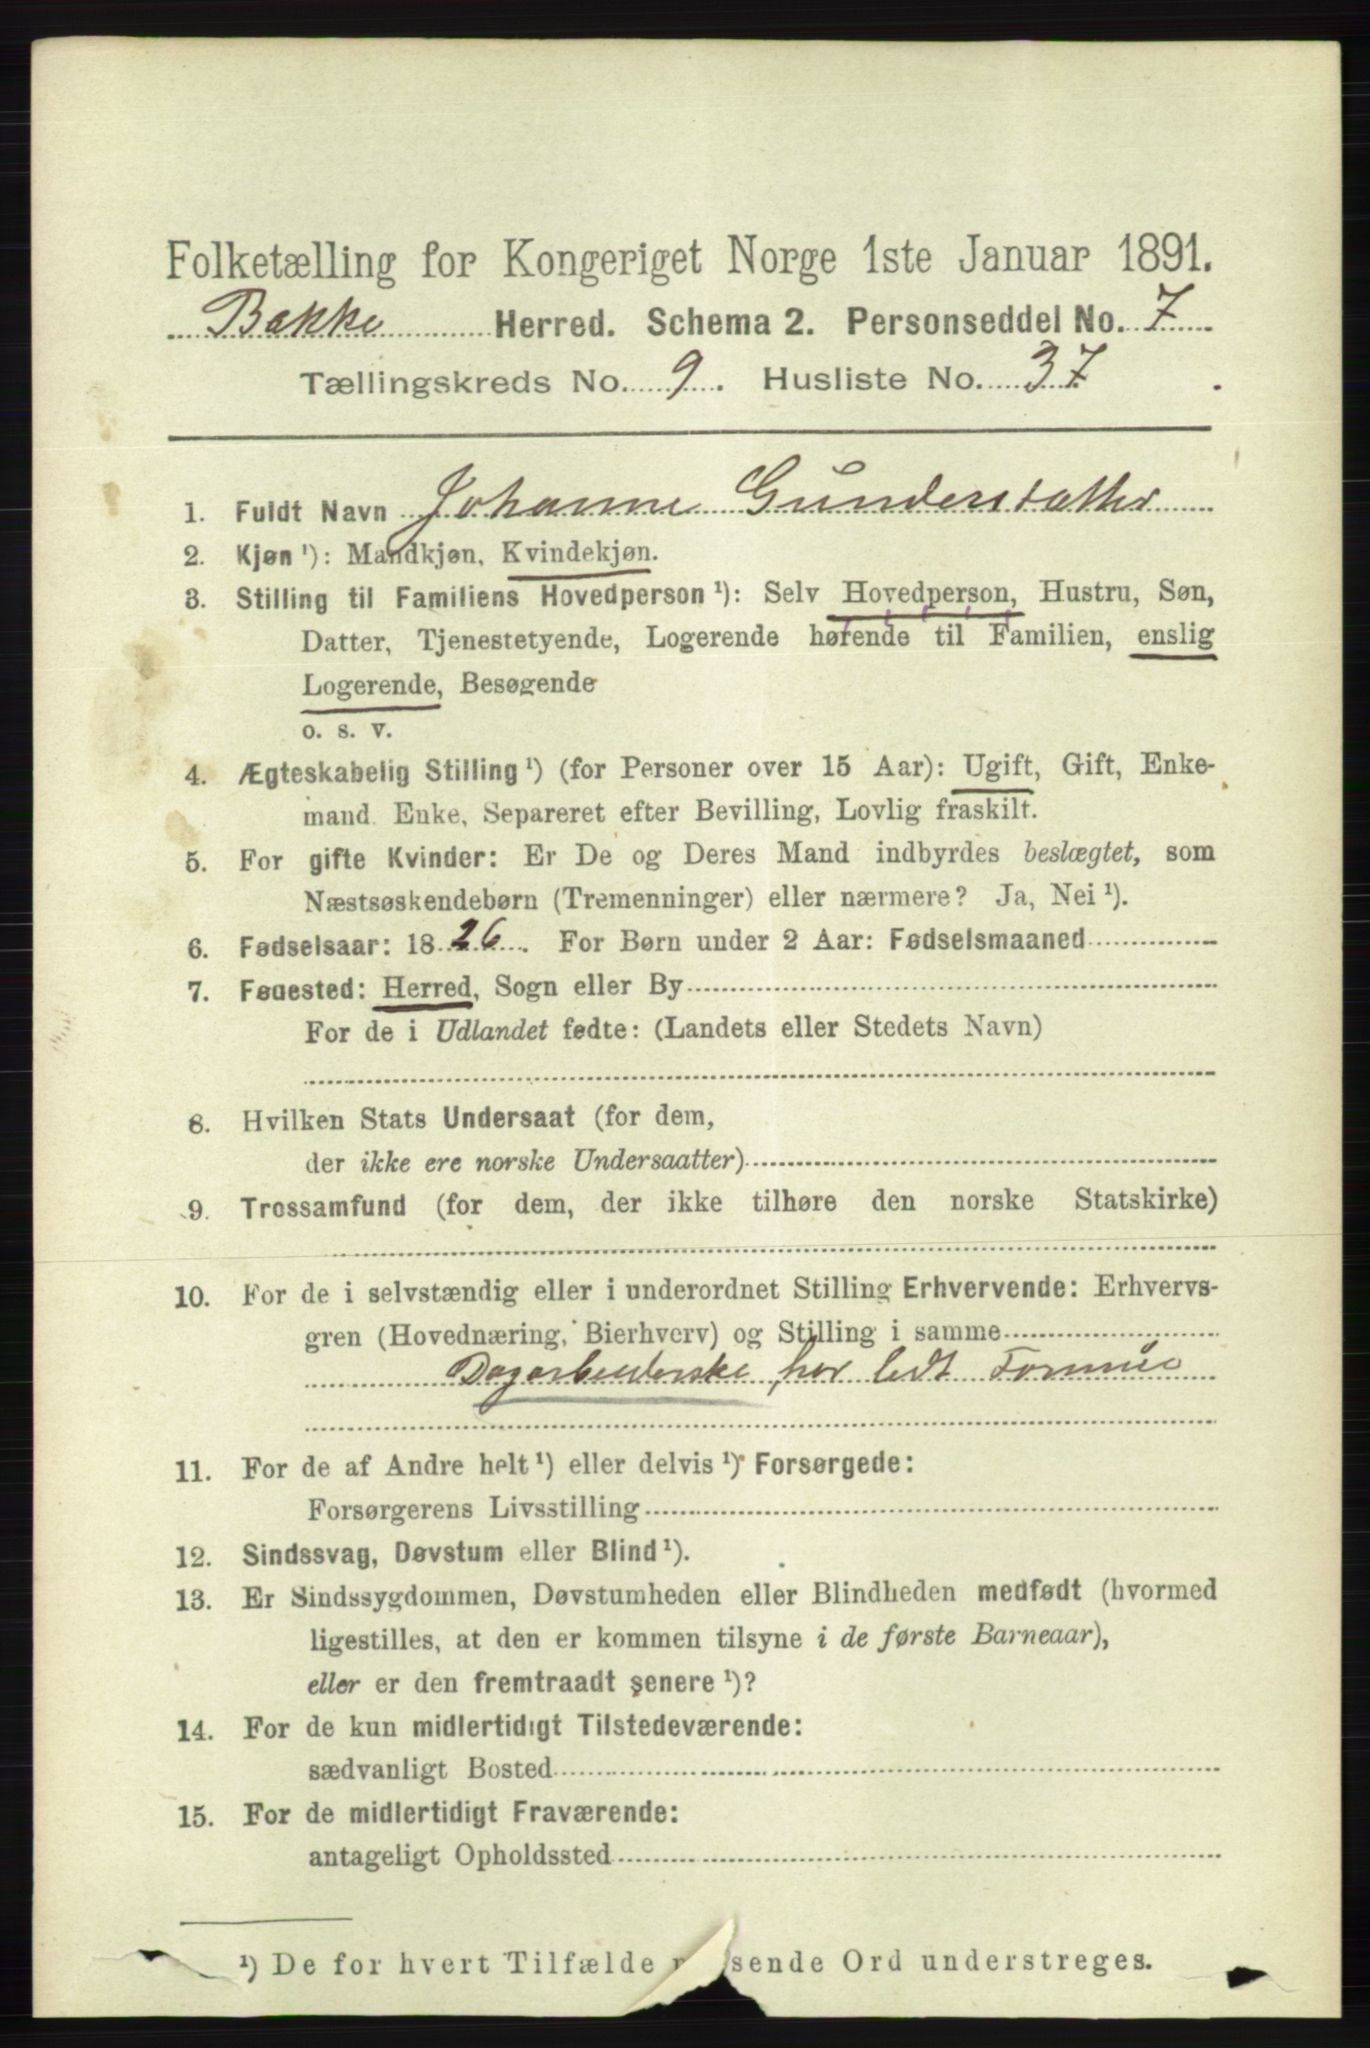 Folketælling for Kongeriget Norge 1ste Januar 1891.
Bakke Herred. Schema 2. Personseddel No. 7
Tællingskreds No. 9. Husliste No. 37
1. Fuldt Navn Johanne Gundersdatter
2. Kjøn ¹): Mandkjøn, Kvindekjøn.
3. Stilling til Familiens Hovedperson ¹): Selv Hovedperson, Hustru, Søn,
Datter, Tjenestetyende, Logerende hørende til Familien, enslig
Logerende, Besøgende
o. s. v.
4. Ægteskabelig Stilling ¹) (for Personer over 15 Aar): Ugift, Gift, Enke-
mand. Enke, Separeret efter Bevilling, Lovlig fraskilt.
5. For gifte Kvinder: Er De og Deres Mand indbyrdes beslægtet, som
Næstsøskendebørn (Tremenninger) eller nærmere? Ja, Nei ¹).
6. Fødselsaar: 1826. For Børn under 2 Aar: Fødselsmaaned
7. Fødested: Herred, Sogn eller By
For de i Udlandet fødte: (Landets eller Stedets Navn)
8. Hvilken Stats Undersaat (for dem,
der ikke ere norske Undersaatter)
9. Trossamfund (for dem, der ikke tilhøre den norske Statskirke)
10. For de i selvstændig eller i underordnet Stilling Erhvervende: Erhvervs-
gren (Hovednæring, Bierhverv) og Stilling i samme
Dagarbeiderske, har lidt Formue
11. For de af Andre helt ¹) eller delvis ¹) Forsørgede:
Forsørgerens Livsstilling
12. Sindssvag, Døvstum eller Blind ¹).
13. Er Sindssygdommen, Døvstumheden eller Blindheden medfødt (hvormed
ligestilles, at den er kommen tilsyne i de første Barneaar),
eller er den fremtraadt senere ¹)?
14. For de kun midlertidigt Tilstedeværende:
sædvanligt Bosted
15. For de midlertidigt Fraværende:
antageligt Opholdssted
¹) De for hvert Tilfælde passende Ord understreges.